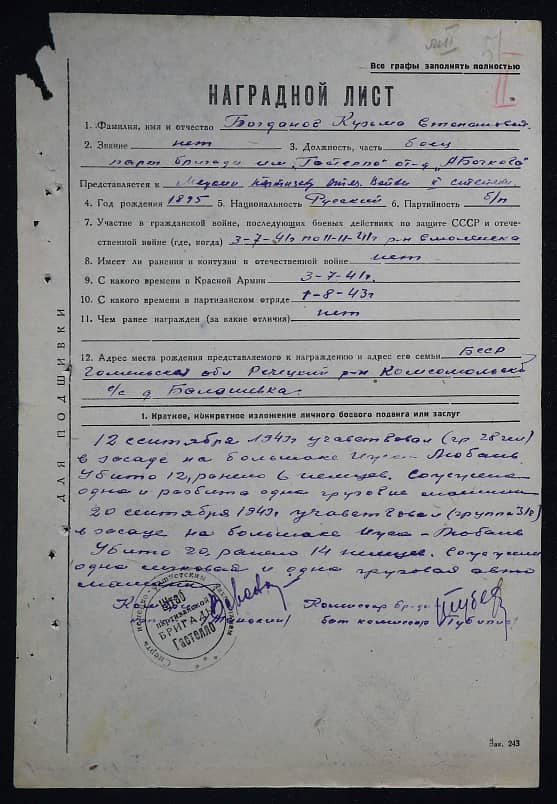 Все графы заполнять полностью
II.
НАГРАДНОЙ ЛИСТ
1. Фамилия, имя и отчество Богданов Кузьма Степанович
2. Звание нет 3. Должность, часть боец
парт. бригады им. "Гастелло" от-д
Представляется к Медали Партизану Отеч. Войны II степени
4. Год рождения 1895 5. Национальность Русский 6. Партийность б/п
7. Участие в гражданской войне, последующих боевых действиях по защите СССР и отече-
ственной войне (где, когда) 3-7-41г по 11-11-41г р-н Смоленска
8. Имеет ли ранения и контузии в отечественной войне нет
9. С какого времени в Красной Армии 3-7-41г.
10. С какого времени в партизанском отряде 1-8-43г
11. Чем ранее награжден (за какие отличия) нет
12. Адрес места рождения представляемого к награждению и адрес его семьи БССР
Гомельская обл Речецкий р-н Комсомольский
с/с д. Балашевка.
ДЛЯ ПОДШИВКИ
1. Краткое, конкретное изложение личного боевого подвига или заслуг
12 сентября 1943г учавствовал (гр. 28 чел)
в засаде на большаке Ууса - Любань
Убито 12, ранено 6 немцев. Сожжена
одна и разбита одна грузовые машины
20 сентября 1943г учавствовал (группа 31ч)
в засаде на большаке Ууса - Любань
Убито 20, ранено 14 немцев. Сожжены
одна легковая и одна грузовая авто
машины
Комиссар бриг
бат комиссар
Смерть немецко-фашистским захватчикам
Штаб
партизанской
БРИГАДЫ
Гастелло
Зак. 243